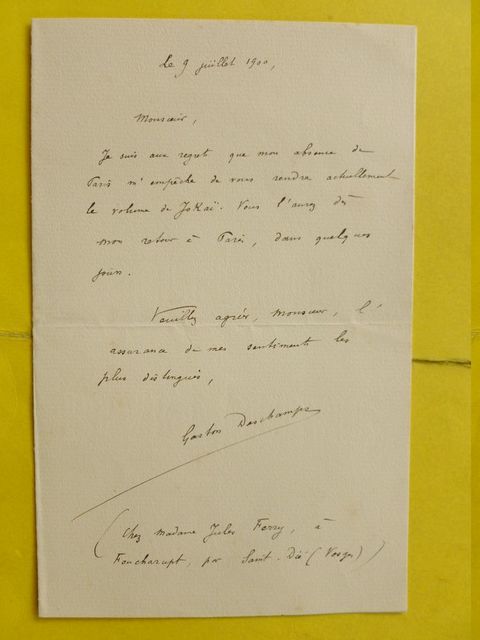 le 9 juillet 1900,
Monsieur,
Je suis aux regrets que mon absence de
Paris m'empêche de vous rendre actuellement
le volume de Jokaï. Vous l'aurez dès
mon retour à Paris, dans quelques
jours.
Veuillez agréer, Monsieur, l'
assurance de mes sentiments les
plus distingués,
Gaston Deschamps
(Chez Madame Jules Ferry, à
Foucharupt, par Saint-Dié (Vosges))